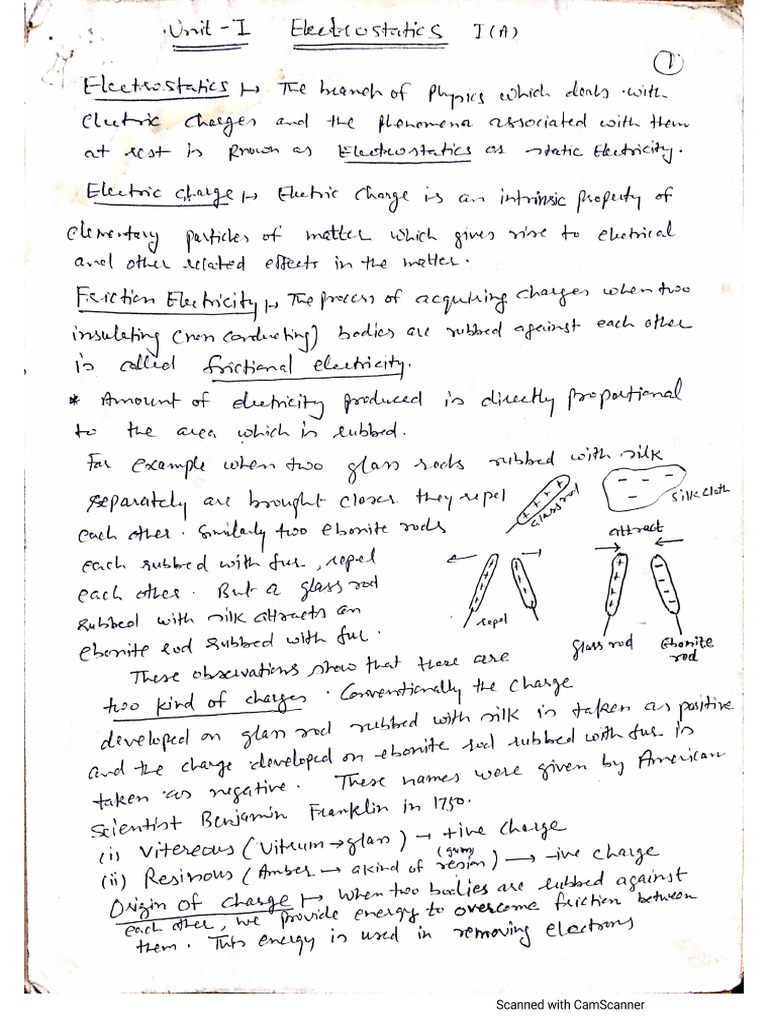 Unit - I Electrostatics I(A)
1
Electrostatics :→ The branch of Physics which deals with
electric charges and the phenomena associated with them
at rest is known as Electrostatics or static Electricity.
Electric charge :→ Electric Charge is an intrinsic property of
elementary particles of matter which gives rise to electrical
and other related effects in the matter.
Friction Electricity :→ The process of acquiring charges when two
insulating (non conducting) bodies are rubbed against each other
is called frictional electricity.
* Amount of electricity produced is directly proportional
to the area which is rubbed.
For example when two glass rods rubbed with silk
separately are brought closer they repel
each other. Similarly two ebonite rods
each rubbed with fur, repel
each other. But a glass rod
rubbed with silk attracts an
ebonite rod rubbed with fur.
+ + + +
Glass rod
- - - -
silk cloth
attract
repel
Glass rod
Ebonite rod
These observations show that there are
two kind of charges. Conventionally the charge
developed on glass rod rubbed with silk is taken as positive
and the charge developed on ebonite rod rubbed with fur is
taken as negative. These names were given by American
Scientist Benjamin Franklin in 1750.
(i) Vitereous (Vitrum → glass) → +ive charge
(ii) Resinous (Amber → a kind of (gum) resion) → -ive charge
Origin of Charge :→ When two bodies are rubbed against
each other, we provide energy to overcome friction between
them. This energy is used in removing electrons
Scanned with CamScanner